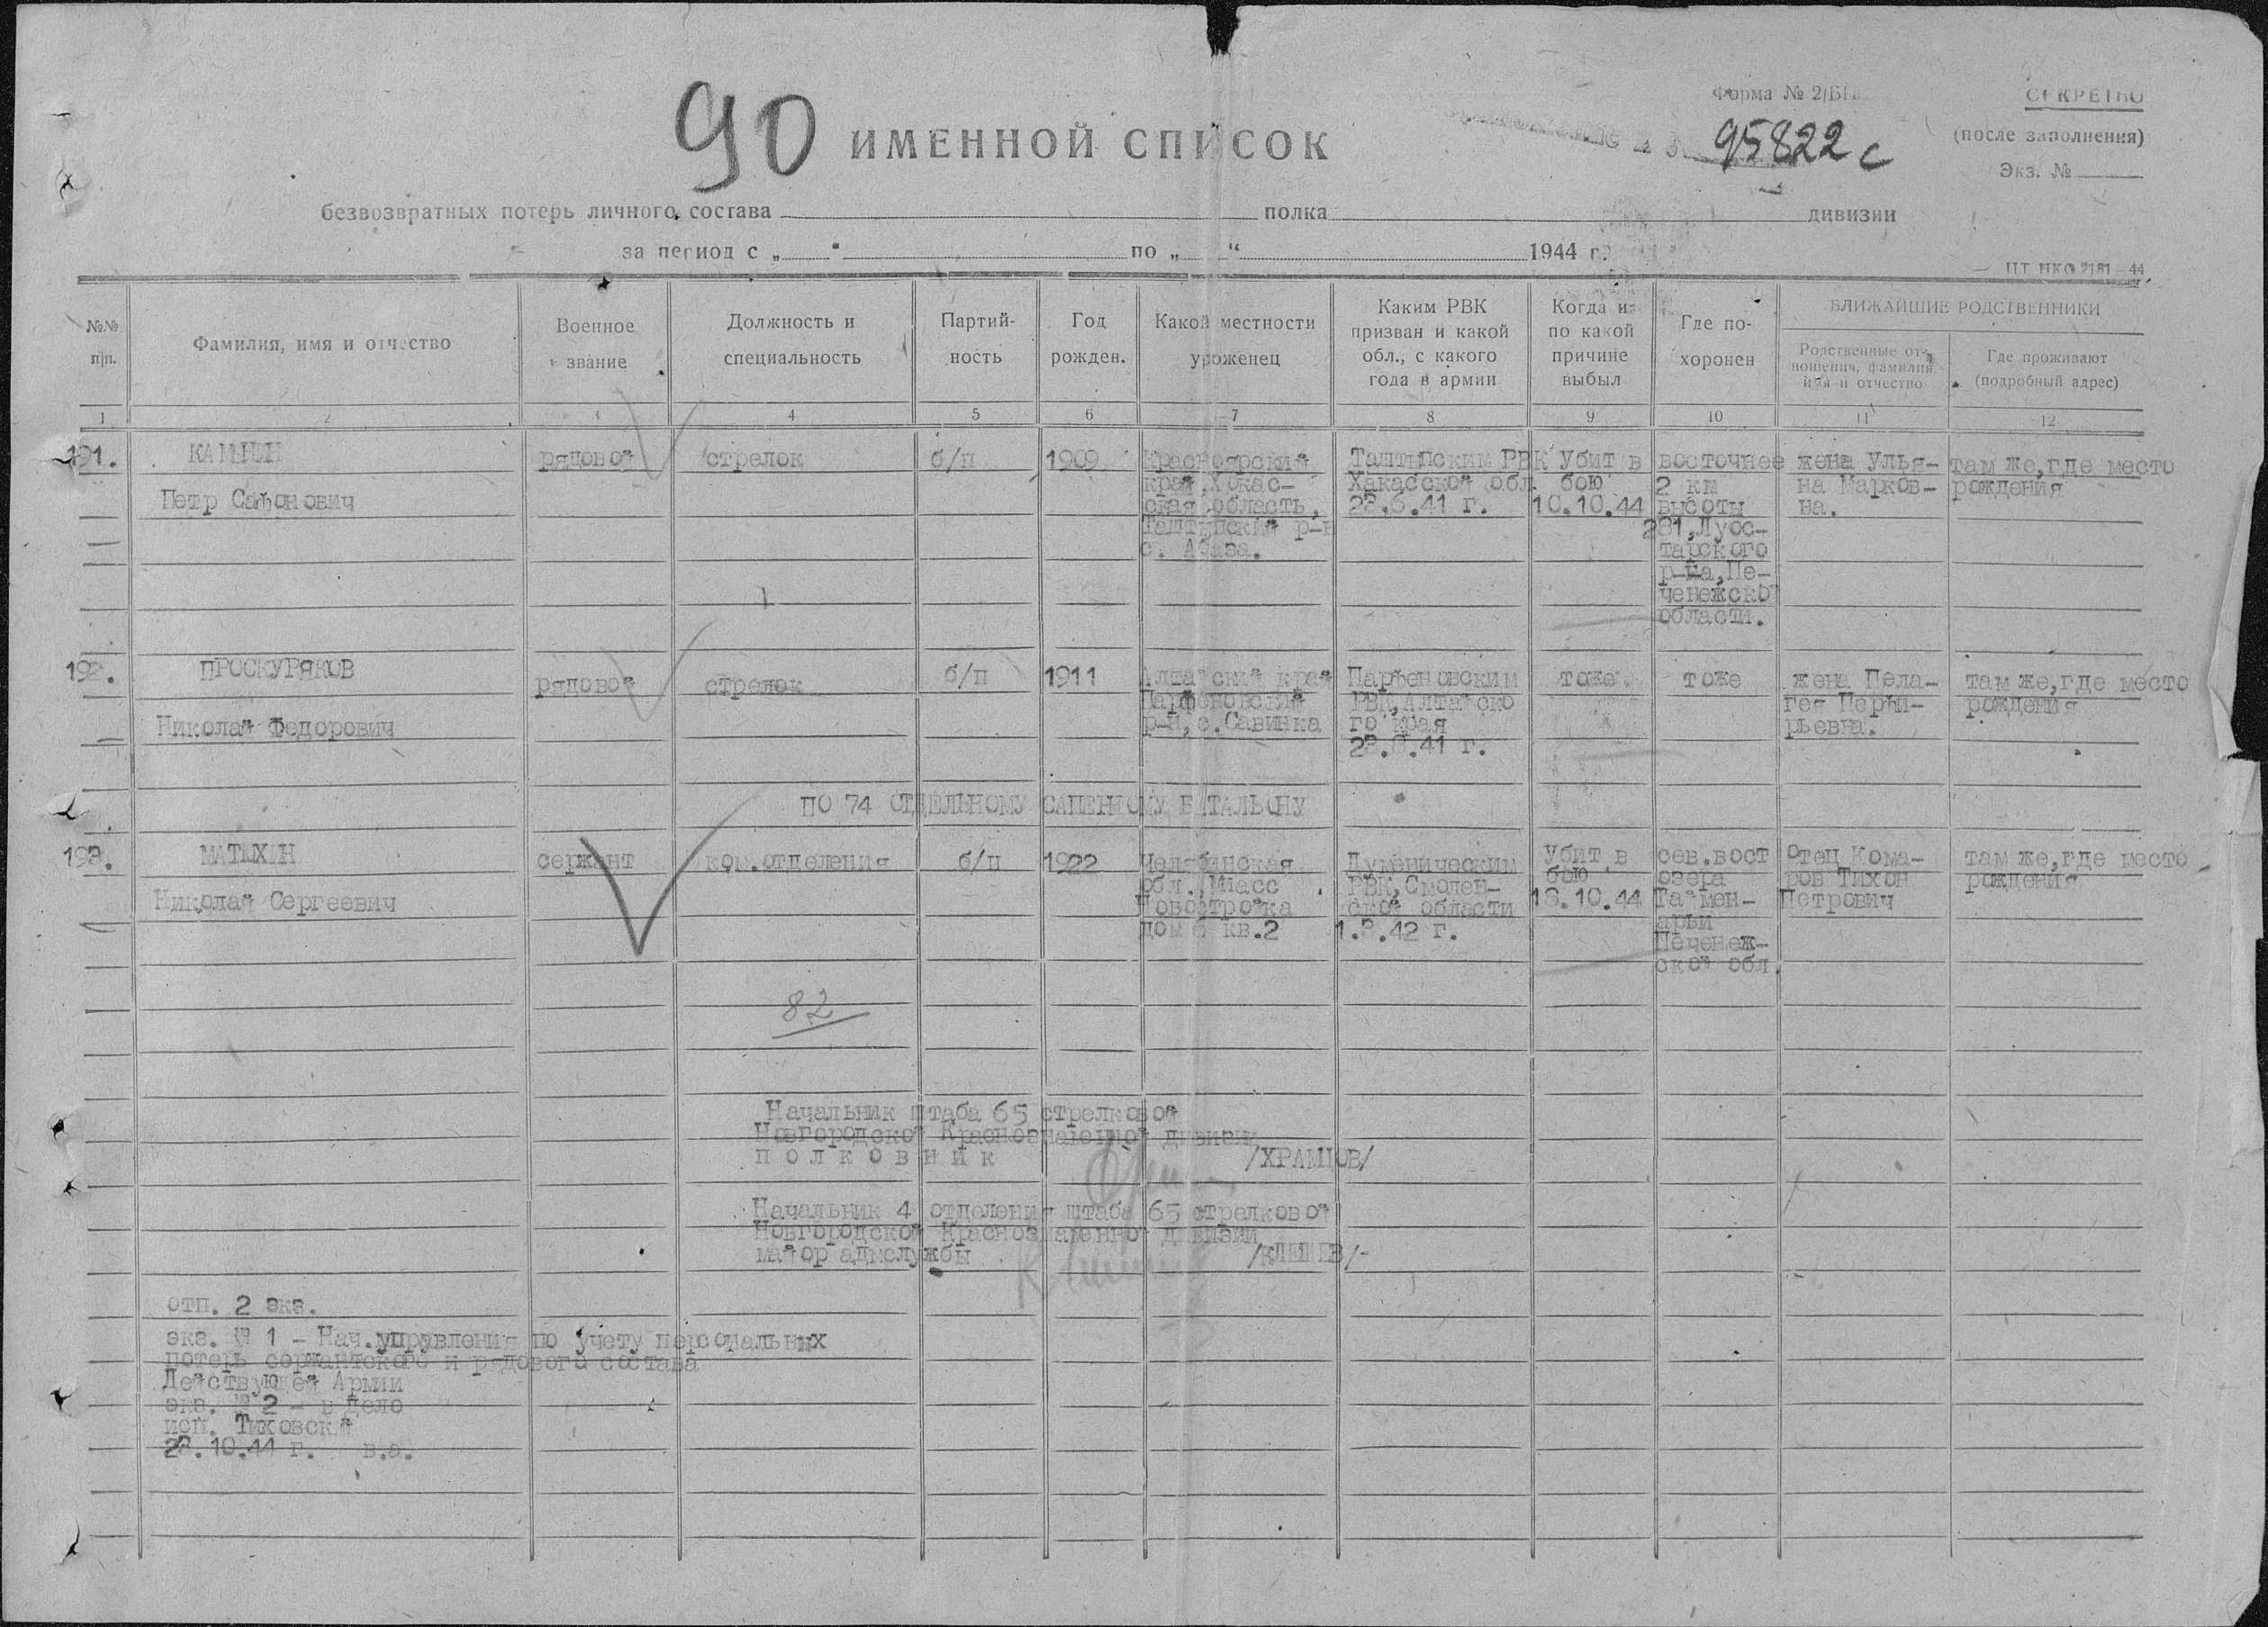 90 ИМЕННОЙ СПИСОК
Форма № 2/БП
СЕКРЕТНО
(после заполнения)
95822 с
Экз. №
безвозвратных потерь личного состава полка дивизии
за период с „ “ по „ “ 1944 г.
№№ п|п.
Фамилия, имя и отчество
Военное звание
Должность и специальность
Партий-ность
Год рожден.
Какой местности уроженец
Каким РВК призван и какой обл., с какого года в армии
Когда и по какой причине выбыл
Где по-хоронен
БЛИЖАЙШИЕ РОДСТВЕННИКИ
Родственные отношения, фамилия, имя и отчество
Где проживают (подробный адрес)
1 2 4 5 6 7 8 9 10 11 12
191. КАМНИН рядовой стрелок б/п 1909 Красноярский Таштыпским РВК Убит в восточнее жена Улья- там же,где место
край,Хокас- Хакасской обл. бою 2 км на Марков- рождения
Петр Сафонович ская область, .41 г. 10.10.44 высоты на.
Таштыпский р-н 281,Луос-
с. Абаза. тарского
р-на,Пе-
ченежской
области.
192. ПРОСКУРЯКОВ рядовой стрелок б/п 1911 Алтайский край Парфеновским тоже тоже жена Пела- там же,где место
Парфеновский РВК,Алтайско гея Перфи- рождения
Николай Федорович р-н,с.Савинка го края рьевна.
.41 г.
ПО 74 ОТДЕЛЬНОМУ САПЕРНОМУ БАТАЛЬОНУ
193. МАТЮХИН сержант ком.отделения б/п 1922 Челябинская Думеническим Убит в сев.вост Отец Кома- там же,где место
обл.,Миасс РВК,Смолен- бою озера ров Тихон рождения
Николай Сергеевич Новостройка ской области 18.10.44 Петрович
дом кв.2 .42 г. арьи
Печенеж-
ской обл.
82
Начальник штаба 65 стрелковой
Новгородской Краснознаменной дивизии
полковник /ХРАМЦОВ/
Начальник 4 отделения штаба 65 стрелковой
Новгородской Краснознаменной дивизии
майор адмслужбы /КЛЕШЕВ/-
отп. 2 экз.
экз. № 1 - Нач.управления по учету персональных
потерь сержантского и рядового состава
Действующей Армии
экз. № 2 - в дело
исп. Тиховский
.10.44 г. в.а.